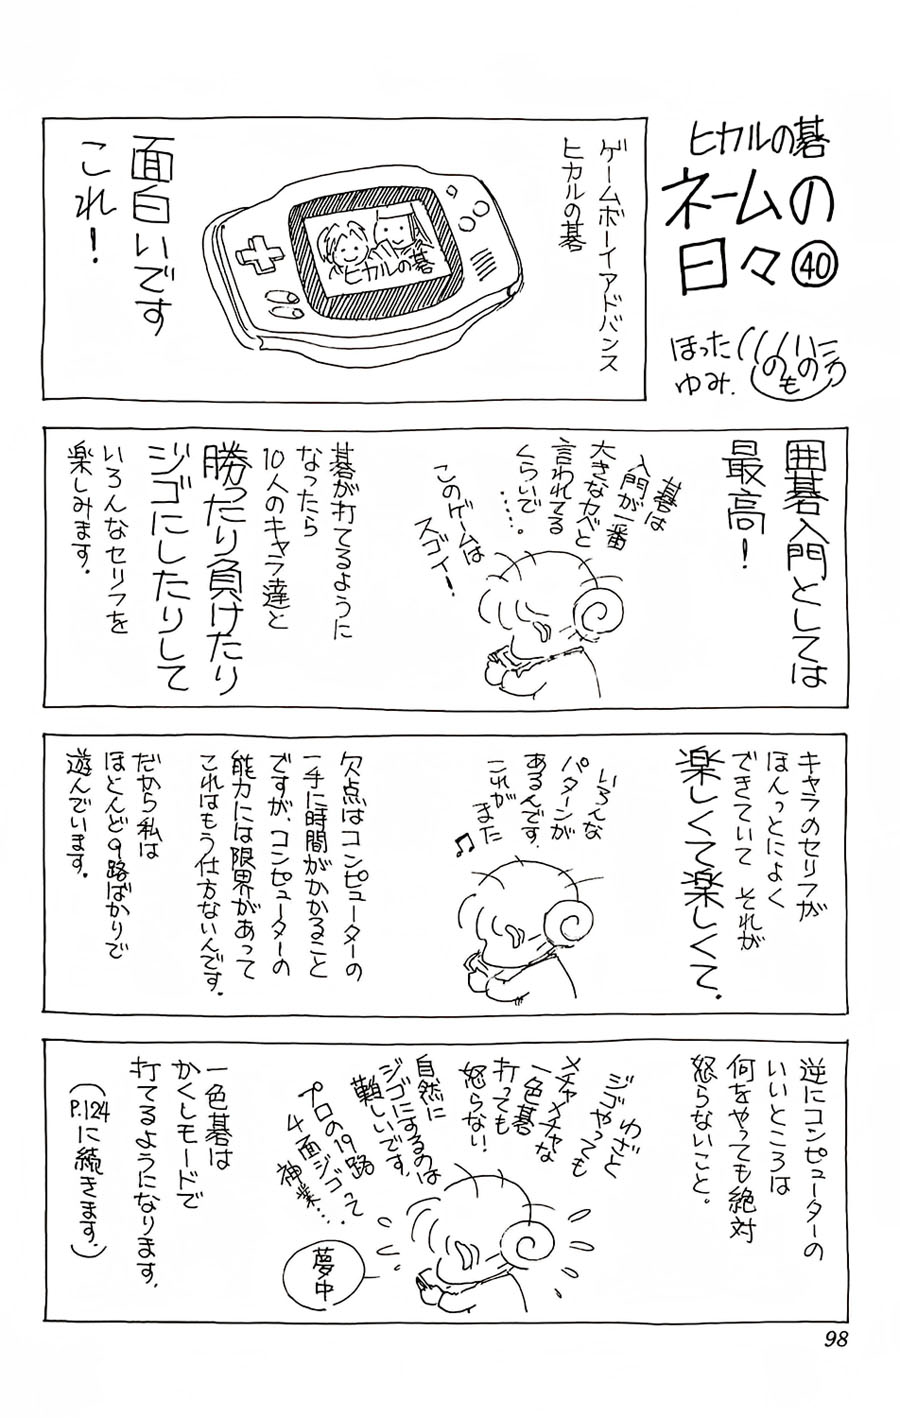 ヒカルの碁
ネームの
日々㊵
ほった
ゆみ.
ゲームボーイアドバンス
ヒカルの碁
ヒカルの碁
面白いです
これ!
囲碁入門としては
最高!
碁は
入門が一番
大きなカベと
言われてる
くらいで
……。
このゲームは
スゴイ!
碁が打てるように
なったら
10人のキャラ達と
勝ったり負けたり
ジゴにしたりして
いろんなセリフを
楽しみます.
キャラのセリフが
ほんっとによく
できていて それが
楽しくて楽しくて.
いろんな
パターンが
あるんです.
これがまた
♫
欠点はコンピューターの
一手に時間がかかること
ですが、コンピューターの
能力には限界があって
これはもう仕方ないんです.
だから私は
ほとんど9路ばかりで
遊んでいます.
逆にコンピューターの
いいところは
何をやっても絶対
怒らないこと。
わざと
ジゴやっても
メチャメチャな
一色碁
打っても
怒らない!
自然に
ジゴにするのは
難しいです.
プロの19路
4面ジゴって
神業….
夢中
一色碁は
かくしモードで
打てるようになります.
(P.124に続きます.)
98